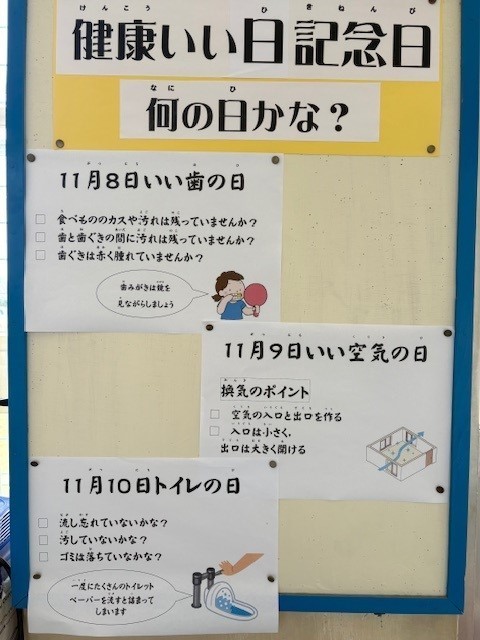 けんこう ひ きねんび
健康いい日記念日
なに ひ
何の日かな？
11月8日いい歯の日
□ 食べもののカスや汚れは残っていませんか？
□ 歯と歯ぐきの間に汚れは残っていませんか？
□ 歯ぐきは赤く腫れていませんか？
歯みがきは鏡を
見ながらしましょう
11月9日いい空気の日
換気のポイント
□ 空気の入口と出口を作る
□ 入口は小さく，
出口は大きく開ける
11月10日トイレの日
□ 流し忘れていないかな？
□ 汚していないかな？
□ ゴミは落ちていなかな？
一度にたくさんのトイレット
ペーパーを流すと詰まって
しまいます